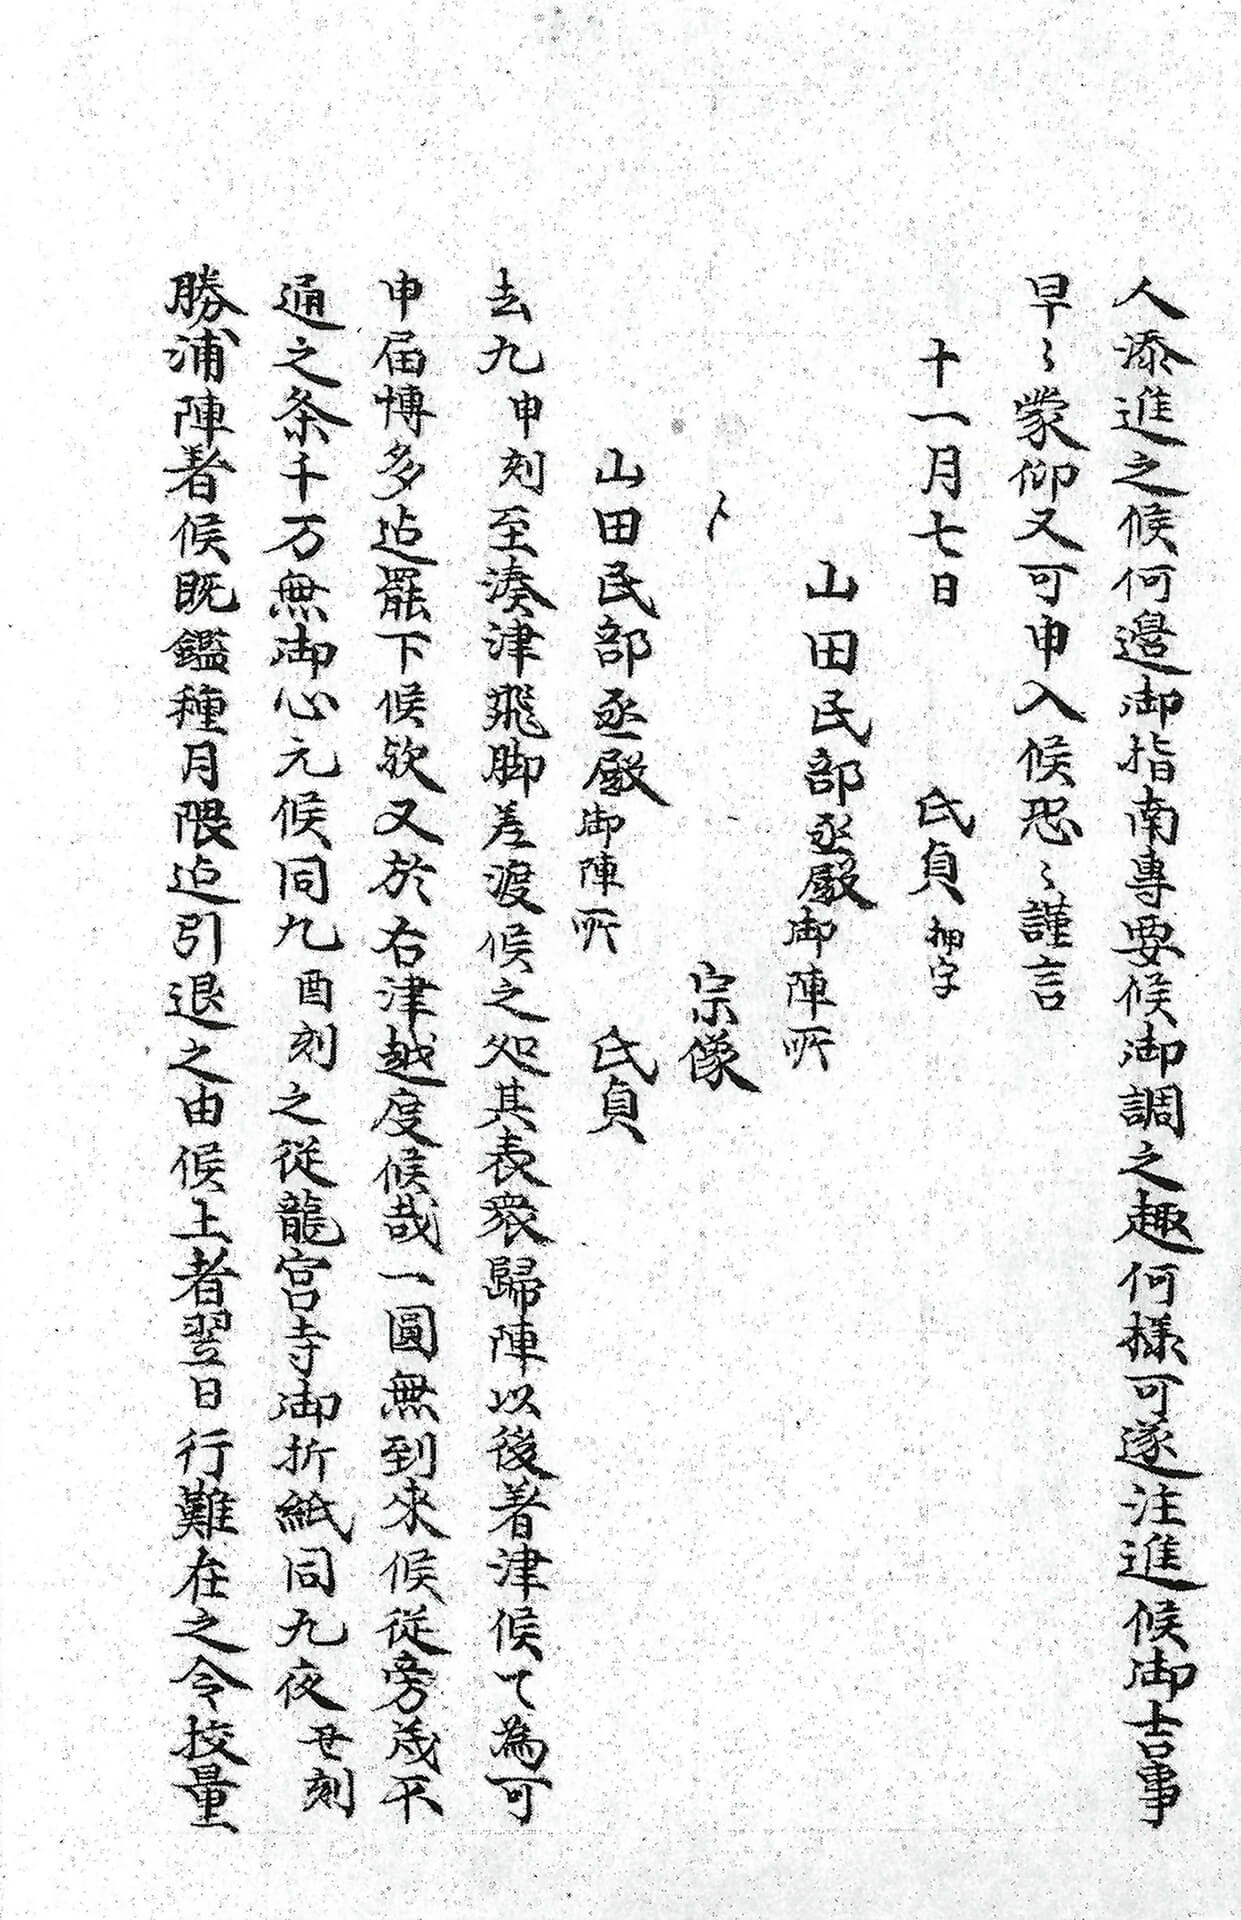 人添進之候何邊御指南專要候御調之趣何樣可遂注進候御吉事
早〻蒙仰又可申入候恐〻謹言
十一月七日　氏貞押字
山田民部丞殿御陣所
宗像
山田民部丞殿御陣所　氏貞
去九申刻至湊津飛脚差渡候之処其表衆歸陣以後着津候て為可
申届博多迠罷下候欤又於右津越度候哉一圓無到来候従旁茂不
通之条千万無御心元候同九酉刻之従龍宮寺御折紙同九夜丑刻
勝浦陣着候既鑑種月隈迠引退之由候上者翌日行難在之令挍量